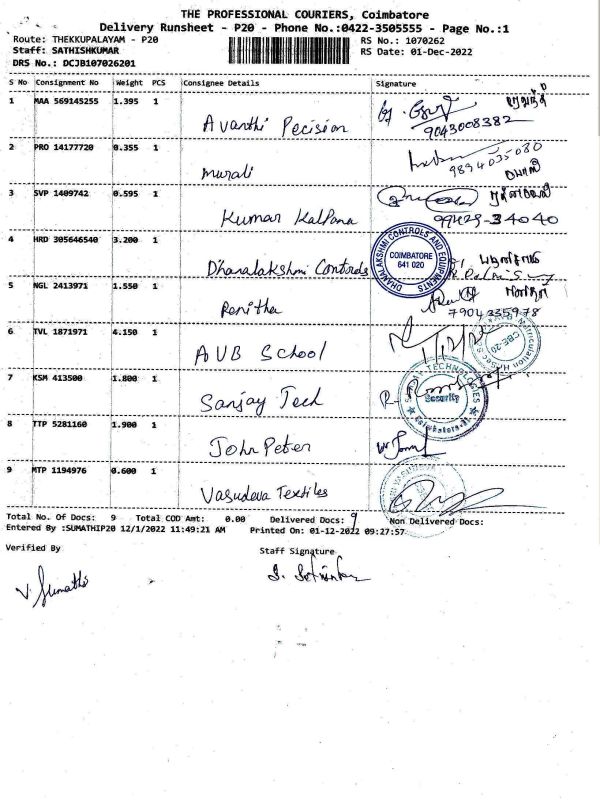 THE PROFESSIONAL COURIERS, Coimbatore
Delivery Runsheet - P20 - Phone No.:0422-3505555 - Page No.:1
Route: THEKKUPALAYAM - P20 RS No.: 1070262
Staff: SATHISHKUMAR RS Date: 01-Dec-2022
DRS No.: DCJB107026201
S No Consignment No Weight PCS Consignee Details Signature
1 MAA 569145255 1.395 1 Avanthi Pecision
9043008382
2 PRO 14177720 0.355 1 murali
9894035080
3 SVP 1409742 0.595 1 Kumar Kalpana
99429-34040
4 HRD 305646540 3.200 1 Dhanalakshmi Controls
DHANALAKSHMI CONTROLS AND EQUIPMENTS
COIMBATORE
641 020
5 NGL 2413971 1.550 1 Renitha
7904335978
6 TVL 1871971 4.150 1 AVB School
Matriculation
CBE-20
7 KSM 413500 1.800 1 Sanjay Tech
TECHNOLOGIES
Security
Coimbatore
8 TTP 5281160 1.900 1 John Peter
9 MTP 1194976 0.600 1 Vasudeva Textiles
Total No. Of Docs: 9 Total COD Amt: 0.00 Delivered Docs: 9 Non Delivered Docs:
Entered By :SUMATHIP20 12/1/2022 11:49:21 AM Printed On: 01-12-2022 09:27:57
Verified By Staff Signature
V. Sumathi